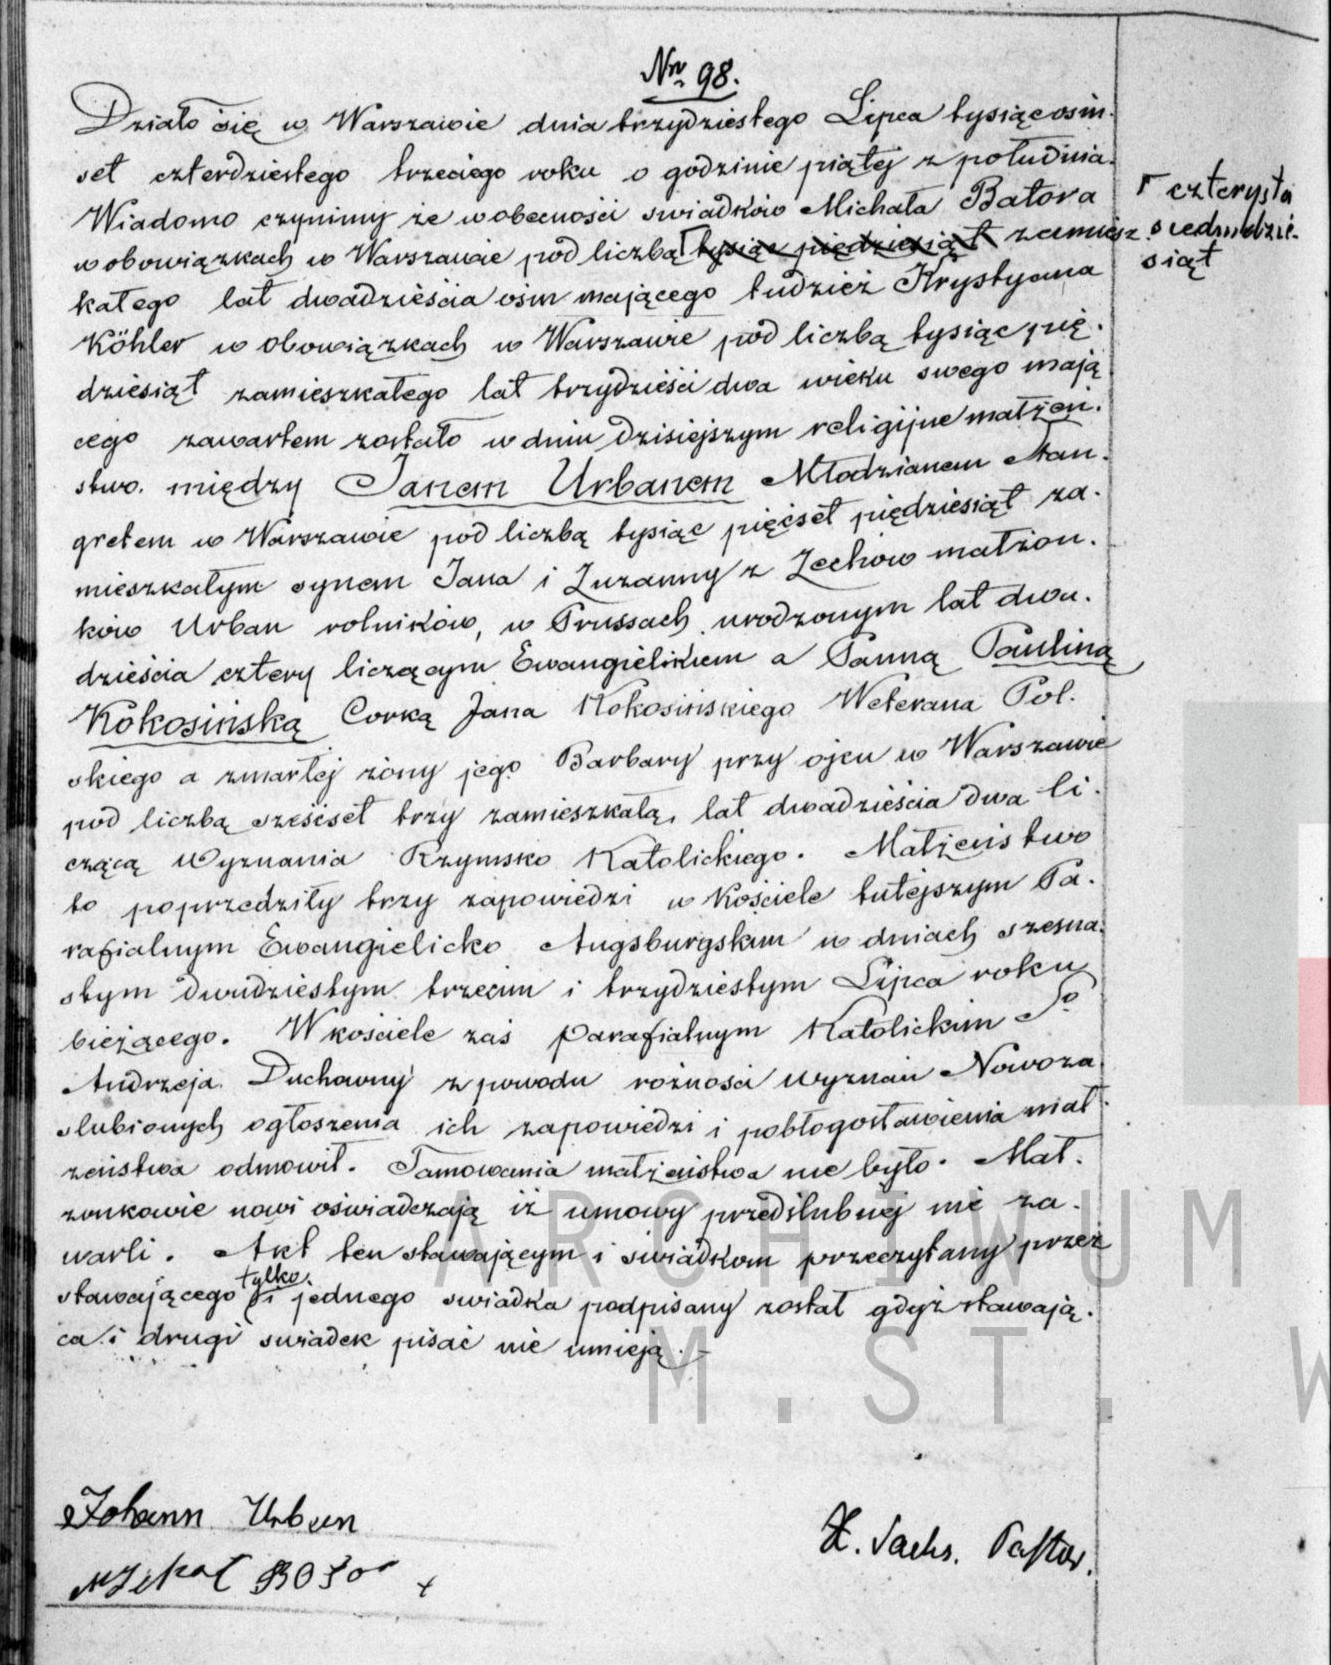 Nr 98.
Działo się w Warszawie dnia trzydziestego Lipca tysiąc osm-
set czterdziestego trzeciego roku o godzinie piątej z południa.
Wiadomo czynimy że w obecności swiadków Michała Batora
w obowiązkach w Warszawie pod liczbą ⌈ tysiąc piędziesiąt zamiesz-
⌈ czterysta
siedmdzie-
siąt
kałego lat dwadzieścia ośm mającego tudzież Krystyana
Köhler w obowiązkach w Warszawie pod liczbą tysiąc pię-
dziesiąt zamieszkałego lat trzydzieści dwa wieku swego mają
cego zawartem zostało w dniu dzisiejszym religijne małżeń-
stwo. między Janem Urbanem Młodzianem Stan-
gretem w Warszawie pod liczbą tysiąc pięćset piędziesiąt za-
mieszkałym synem Jana i Zuzanny z Zechów małżon-
ków Urban rolników, w Prussach urodzonym lat dwa-
dzieścia cztery liczącym Ewangielikiem a Panną Pauliną
Kokosińską Corką Jana Kokosińskiego Weterana Pol-
skiego a zmarłej żony jego Barbary przy ojcu w Warszawie
pod liczbą sześćset trzy zamieszkałą, lat dwadzieścia dwa li-
czącą Wyznania Rzymsko Katolickiego. Małżeństwo
to poprzedziły trzy zapowiedzi w Kościele tutejszym Pa-
rafialnym Ewangielicko Augsburgskim w dniach szesna-
stym dwudziestym trzecim i trzydziestym Lipca roku
bieżącego. W kościele zaś Parafialnym Katolickim So
Andrzeja Duchowny z powodu rożnosci wyznań Nowoza
slubionych ogłoszenia ich zapowiedzi i pobłogosławienia mał-
żeństwa odmowił. Tamowania małżeństwa nie było. Mał-
zonkowie nowi oświadczają iż umowy przedślubnej nie za-
warli. Akt ten stawającym i swiadkom przeczytany przez
tylko
stawającego i jednego swiadka podpisany został gdyż stawają-
ca i drugi swiadek pisać nie umieją.
Johann Urban
X. Sachs. Pastor.
+
ARCHIWUM
M.ST. W